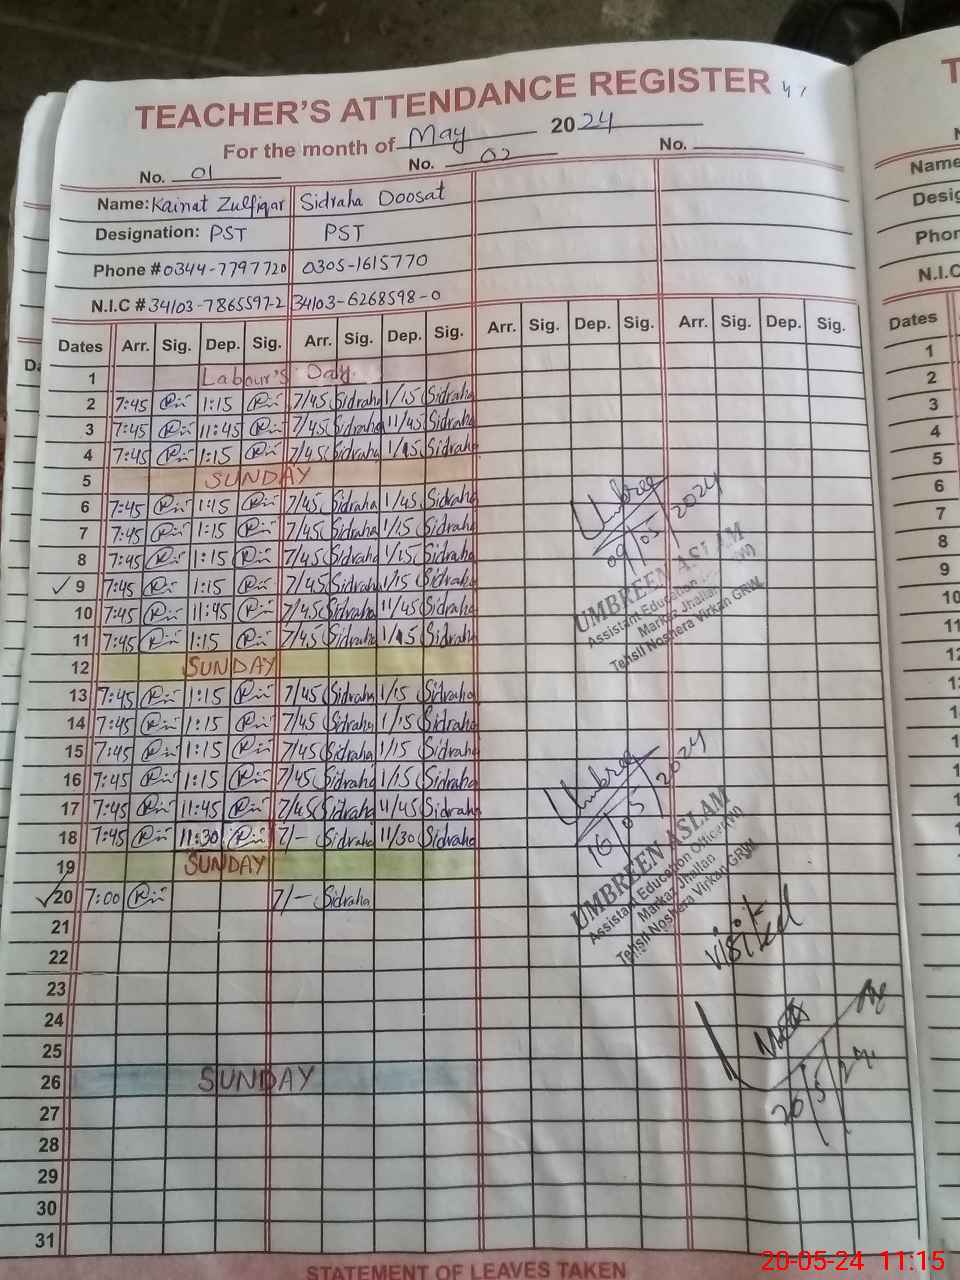 TEACHER'S ATTENDANCE REGISTER
For the month of May 2024
No. 01 No. 02 No.
Name: Kainat Zulfiqar Sidraha Doosat
Designation: PST PST
Phone # 0344-7797720 0305-1615770
N.I.C # 34103-7865597-2 34103-6268598-0
Dates Arr. Sig. Dep. Sig. Arr. Sig. Dep. Sig. Arr. Sig. Dep. Sig. Arr. Sig. Dep. Sig.
1 Labour's Day
2 7:45 1:15 7/45 Sidraha 1/15 Sidraha
3 7:45 11:45 7/45 Sidraha 11/45 Sidraha
4 7:45 1:15 7/45 Sidraha 1/15 Sidraha
5 SUNDAY
6 7:45 1:15 7/45 Sidraha 1/45 Sidraha
7 7:45 1:15 7/45 Sidraha 1/15 Sidraha
8 7:45 1:15 7/45 Sidraha 1/15 Sidraha
9 7:45 1:15 7/45 Sidraha 1/15 Sidraha
10 7:45 11:45 7/45 Sidraha 11/45 Sidraha
11 7:45 1:15 7/45 Sidraha 1/15 Sidraha
12 SUNDAY
13 7:45 1:15 7/45 Sidraha 1/15 Sidraha
14 7:45 1:15 7/45 Sidraha 1/15 Sidraha
15 7:45 1:15 7/45 Sidraha 1/15 Sidraha
16 7:45 1:15 7/45 Sidraha 1/15 Sidraha
17 7:45 11:45 7/45 Sidraha 11/45 Sidraha
18 7:45 11:30 7/- Sidraha 11/30 Sidraha
19 SUNDAY
20 7:00 7/- Sidraha
21
22
23
24
25
26 SUNDAY
27
28
29
30
31
09/05/2024
UMBREEN ASLAM
Assistant Education (W)
Markaz Jhallan
Tehsil Noshera Virkan GRW
16/05/2024
UMBREEN ASLAM
Assistant Education Officer (W)
Markaz Jhallan
Tehsil Noshera Virkan GRW
visited
20/5/24
STATEMENT OF LEAVES TAKEN
Name
Phon
N.I.C
Dates
1
2
3
4
5
6
7
8
9
10
11
12
20-05-24 11:15